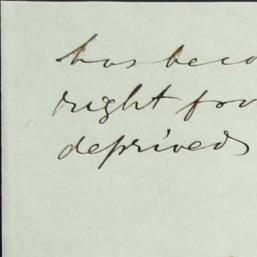 has beco
right for
deprived